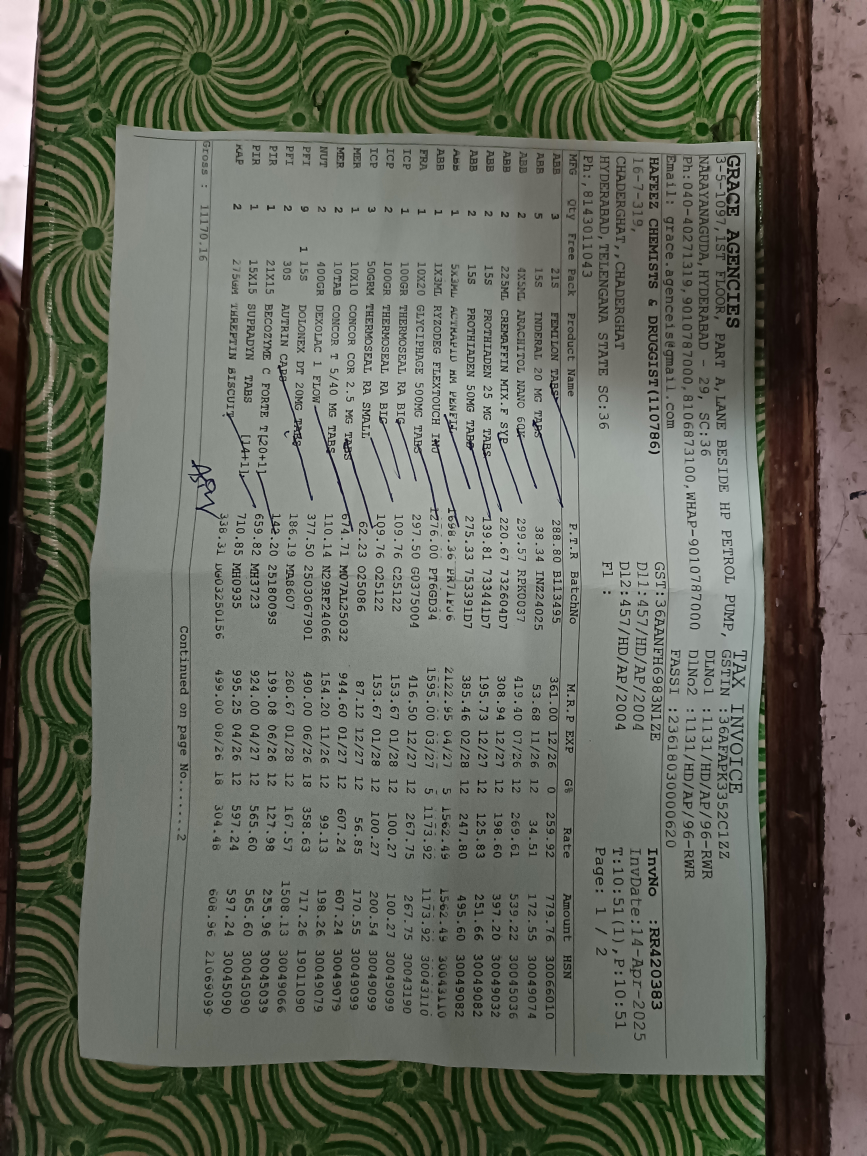 TAX INVOICE
GRACE AGENCIES
3-5-1097,1ST FLOOR, PART A,LANE BESIDE HP PETROL PUMP, GSTIN :36AFAPK3352C1ZZ
NARAYANAGUDA,HYDERABAD - 29, SC:36 DLNo1 :1131/HD/AP/96-RWR
Ph:040-40271319,9010787000,8106873100,WHAP-9010787000 DlNo2 :1131/HD/AP/96-RWR
Email: grace.agenceis@gmail.com FASSI :23618030000620
HAFEEZ CHEMISTS & DRUGGIST(110786) GST:36AANFH6983N1ZE InvNo :RR420383
16-7-319, Dl1:457/HD/AP/2004 InvDate:14-Apr-2025
CHADERGHAT,,CHADERGHAT Dl2:457/HD/AP/2004 T:10:51(1),P:10:51
HYDERABAD,TELENGANA STATE SC:36 Fl : Page: 1 / 2
Ph:,8143011043
MFG Qty Free Pack Product Name P.T.R BatchNo M.R.P EXP G% Rate Amount HSN
ABB 3 21S FEMILON TABS 288.80 B113495 361.00 12/26 0 259.92 779.76 30066010
ABB 5 15S INDERAL 20 MG TABS 38.34 INZ24025 53.68 11/26 12 34.51 172.55 30049074
ABB 2 4X5ML ARACHITOL NANO 60K 299.57 RPK0037 419.40 07/26 12 269.61 539.22 30045036
ABB 2 225ML CREMAFFIN MIX.F SYP 220.67 732604D7 308.94 12/27 12 198.60 397.20 30049032
ABB 2 15S PROTHIADEN 25 MG TABS 139.81 733441D7 195.73 12/27 12 125.83 251.66 30049082
ABB 2 15S PROTHIADEN 50MG TABS 275.33 753391D7 385.46 02/28 12 247.80 495.60 30049082
ABB 1 5X3ML ACTRAPID HM PENFIL 1698.36 PR71F06 2122.95 04/27 5 1562.49 1562.49 30043110
ABB 1 1X3ML RYZODEG FLEXTOUCH INJ 1276.00 PT6GD34 1595.00 03/27 5 1173.92 1173.92 30043110
FRA 1 10X20 GLYCIPHAGE 500MG TABS 297.50 G0375004 416.50 12/27 12 267.75 267.75 30043190
ICP 1 100GR THERMOSEAL RA BIG 109.76 C25122 153.67 01/28 12 100.27 100.27 30049099
ICP 2 100GR THERMOSEAL RA BIG 109.76 O25122 153.67 01/28 12 100.27 200.54 30049099
ICP 3 50GRM THERMOSEAL RA SMALL 62.23 O25086 87.12 12/27 12 56.85 170.55 30049099
MER 1 10X10 CONCOR COR 2.5 MG TABS 674.71 M07AL25032 944.60 01/27 12 607.24 607.24 30049079
MER 2 10TAB CONCOR T 5/40 MG TABS 110.14 N29RF24066 154.20 11/26 12 99.13 198.26 30049079
NUT 2 400GR DEXOLAC 1 FLOW 377.50 2503067901 490.00 06/26 18 358.63 717.26 19011090
PFI 9 1 15S DOLONEX DT 20MG TABS 186.19 MA8607 260.67 01/28 12 167.57 1508.13 30049066
PFI 2 30S AUTRIN CAPS 142.20 2518009S 199.08 06/26 12 127.98 255.96 30045039
PIR 1 21X15 BECOZYME C FORTE T[20+1] 659.82 MH3723 924.00 04/27 12 565.60 565.60 30045090
PIR 1 15X15 SUPRADYN TABS [14+1] 710.85 MH0935 995.25 04/26 12 597.24 597.24 30045090
RAP 2 275GM THREPTIN BISCUIT 338.31 DG03250156 499.00 08/26 18 304.48 608.96 21069099
Gross : 11170.16
Continued on page No.......2